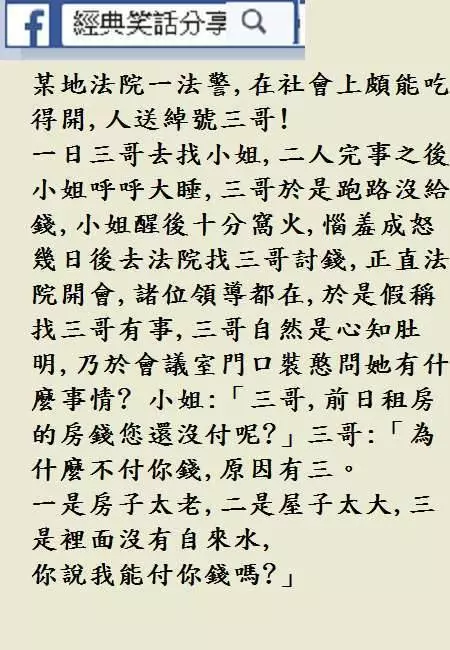 經典笑話分享
某地法院一法警,在社會上頗能吃
得開,人送綽號三哥!
一日三哥去找小姐,二人完事之後
小姐呼呼大睡,三哥於是跑路沒給
錢,小姐醒後十分窩火,惱羞成怒
幾日後去法院找三哥討錢,正直法
院開會,諸位領導都在,於是假稱
找三哥有事,三哥自然是心知肚
明,乃於會議室門口裝憨問她有什
麼事情? 小姐:「三哥,前日租房
的房錢您還沒付呢?」三哥:「為
什麼不付你錢,原因有三。
一是房子太老,二是屋子太大,三
是裡面沒有自來水,
你說我能付你錢嗎?」